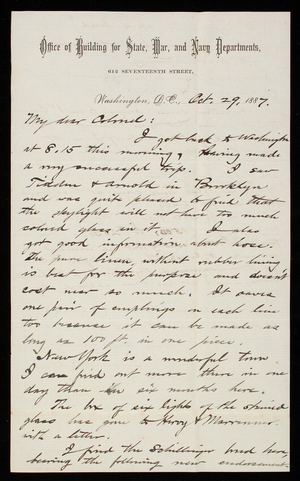 Office of Building for State, War, and Navy Departments,
612 SEVENTEENTH STREET,
Washington, D.C., Oct. 29, 1887.
My dear Colonel:
I got back to Washington
at 8.15 this morning, having made
a my successful trip. I saw
Tidden & Arnold in Brooklyn
and was quite pleased to find that
the skylight will not have too much
colored glass in it. I also
got good information about hose.
The pure linen, without rubber lining
is best for the purpose and doesn't
cost near so much. It saves
one pair of couplings on each line
too because it can be made as
long as 100 ft. in one piece.
New York is a wonderful town
I can find out more there in one
day than in six months here.
The box of six lights of the stained
glass has gone to Harry &
with a letter.
I find the Schillinger bond here,
bearing the following new endorsement-